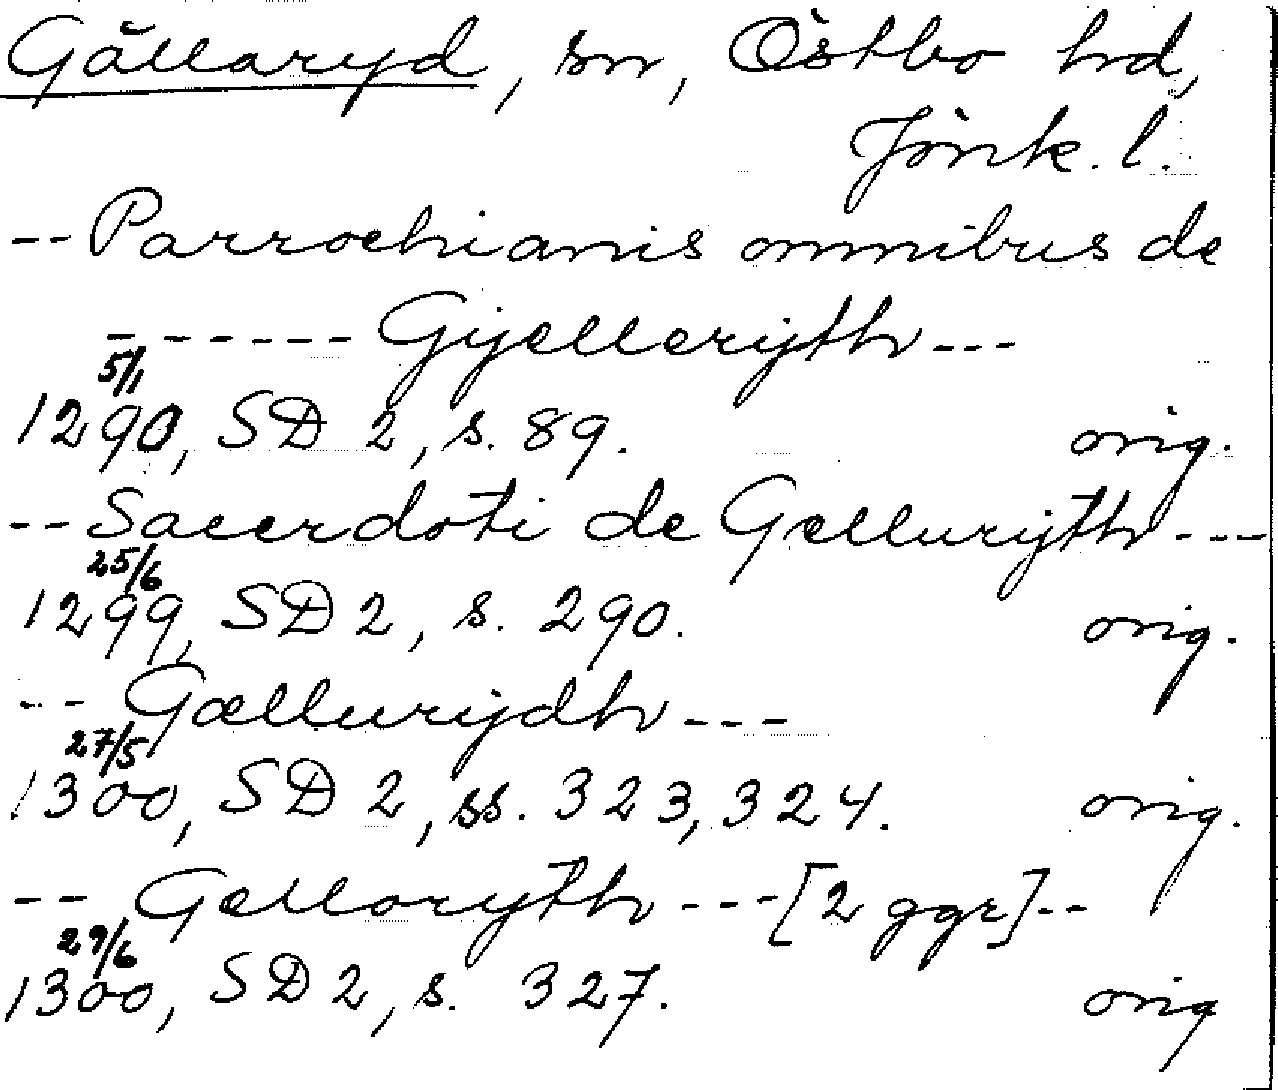 Gällaryd, sn, Östbo hd,
Jönk. l.
-- Parrochianis omnibus de
------ Gyelleryth ---
5/1
1290, SD 2, s. 89. orig.
-- Sacerdoti de Gelluryth ---
25/6
1299, SD 2, s. 290. orig.
-- Gællurydh ---
27/5
1300, SD 2, ss. 323, 324. orig.
-- Gelloryth --- [2 ggr] --
29/6
1300, SD 2, s. 327. orig